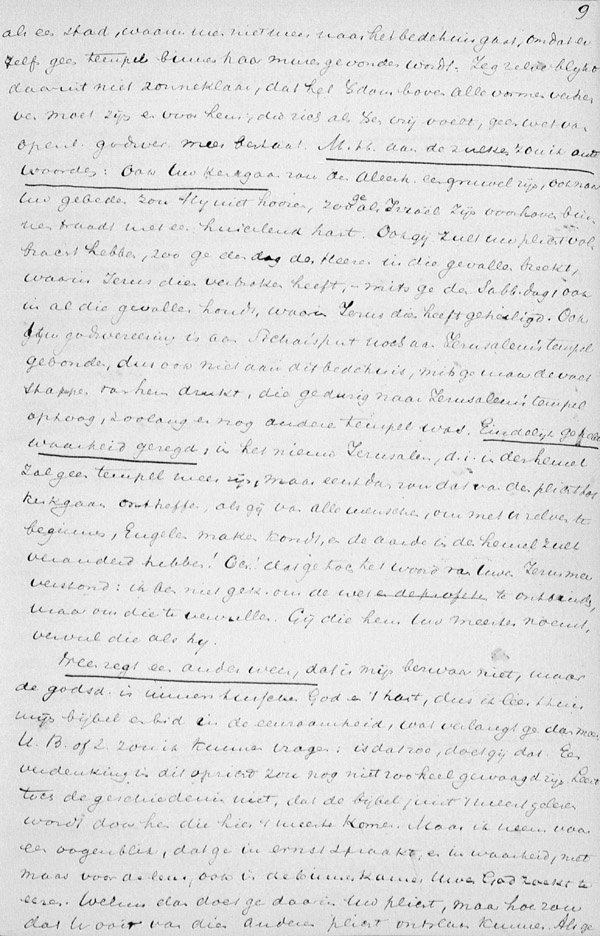 9
als een stad, waarin men niet meer naar het bedehuis gaat, omdat er
zelfs geen tempel binnen haar muren gevonden wordt. Zegt zelve blijkt
daaruit niet zonneklaar, dat het dan boven alle vormen verheven
ven moet zijn en voor hem, die zich als vrij voelt, geen wet van
openb. godsver. meer bestaat. M. H. aan de zulken zou ik ant-
woorden: Ook Uw kerkgaan zou den Alleenh. een gruwel zijn, ook naar
Uw gebeden zou Hy niet hooren, zoo ge als Israël Zijn voorhoven bin-
nen traadt met een huichelend hart. Ook gij zult uw plicht vol-
bracht hebben, zoo ge den dag des Heeren in die gevallen breekt,
waarin Jezus dien verbroken heeft, - mits ge den Sabbdag ook
in al die gevallen houdt, waarin Jezus dien heeft geheiligd. Ook
Uw godsvereering is aan Sichars put noch aan Jerusalems tempel
gebonden, dus ook niet aan dit bedehuis, mits ge maar de voet-
stappen van hem drukt, die gedurig naar Jerusalems tempel
opkoog, zoolang er nog andere tempel was. Eindelijk ge hebt
waarheid gezegd; in het nieuwe Jerusalem, d. i. in den hemel
zal geen tempel meer zijn, maar eerst dan zou dat van den plicht tot
kerkgaan ontheffen, als gij van alle menschen, om met U zelven te
beginnen, Engelen maken kondt, en de aarde in den hemel zult
veranderd hebben! Och! dat ge toch het woord van Uwen Jezus meer
verstond: ik ben niet gek. om de wet en de profeten te ontbinden,
maar om die te vervullen. Gij die hem Uw meester noemt,
vervul die als hy.
Neen zegt een ander weer, dat is mijn bezwaar niet, maar
de godsd. is immers tusschen God en 't hart, dus ik lees thuis
mijn bijbel en bid in de eenzaamheid, wat verlangt ge dan meer
U. B. of Z. zou ik kunnen vragen: is dat zoo, doet gij dat. Een
verdenking in dit opzicht zou nog niet zoo heel gewaagd zijn. Leert
toch de geschiedenis niet, dat de bijbel juist 't meest gelezen
wordt door hen die hier 't meeste komen. Maar ik neem voor
een oogenblik, dat ge in ernst spraakt, en in waarheid, niet
maar voor de leus, ook in de binnenkamer Uwen God zoekt te
eeren. Welnu dan doet ge daarin Uw plicht, maar hoe zou
dat U ooit van dien anderen plicht ontslaan kunnen. Als ge